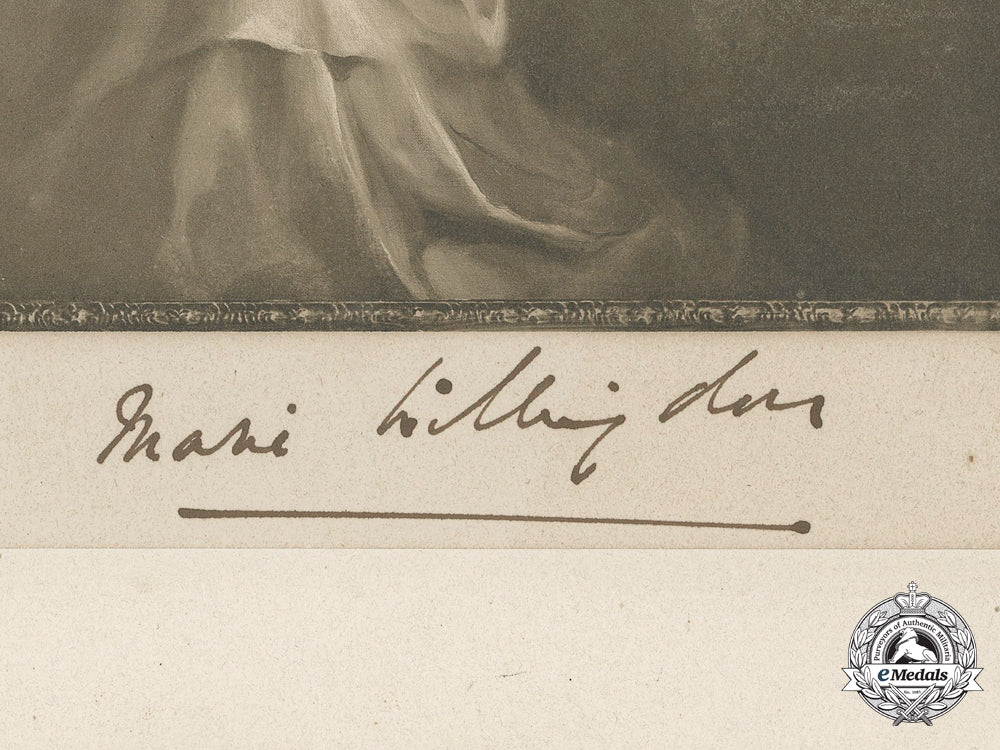 Marie Willingdon
Purveyors of Authentic Militaria
eMedals